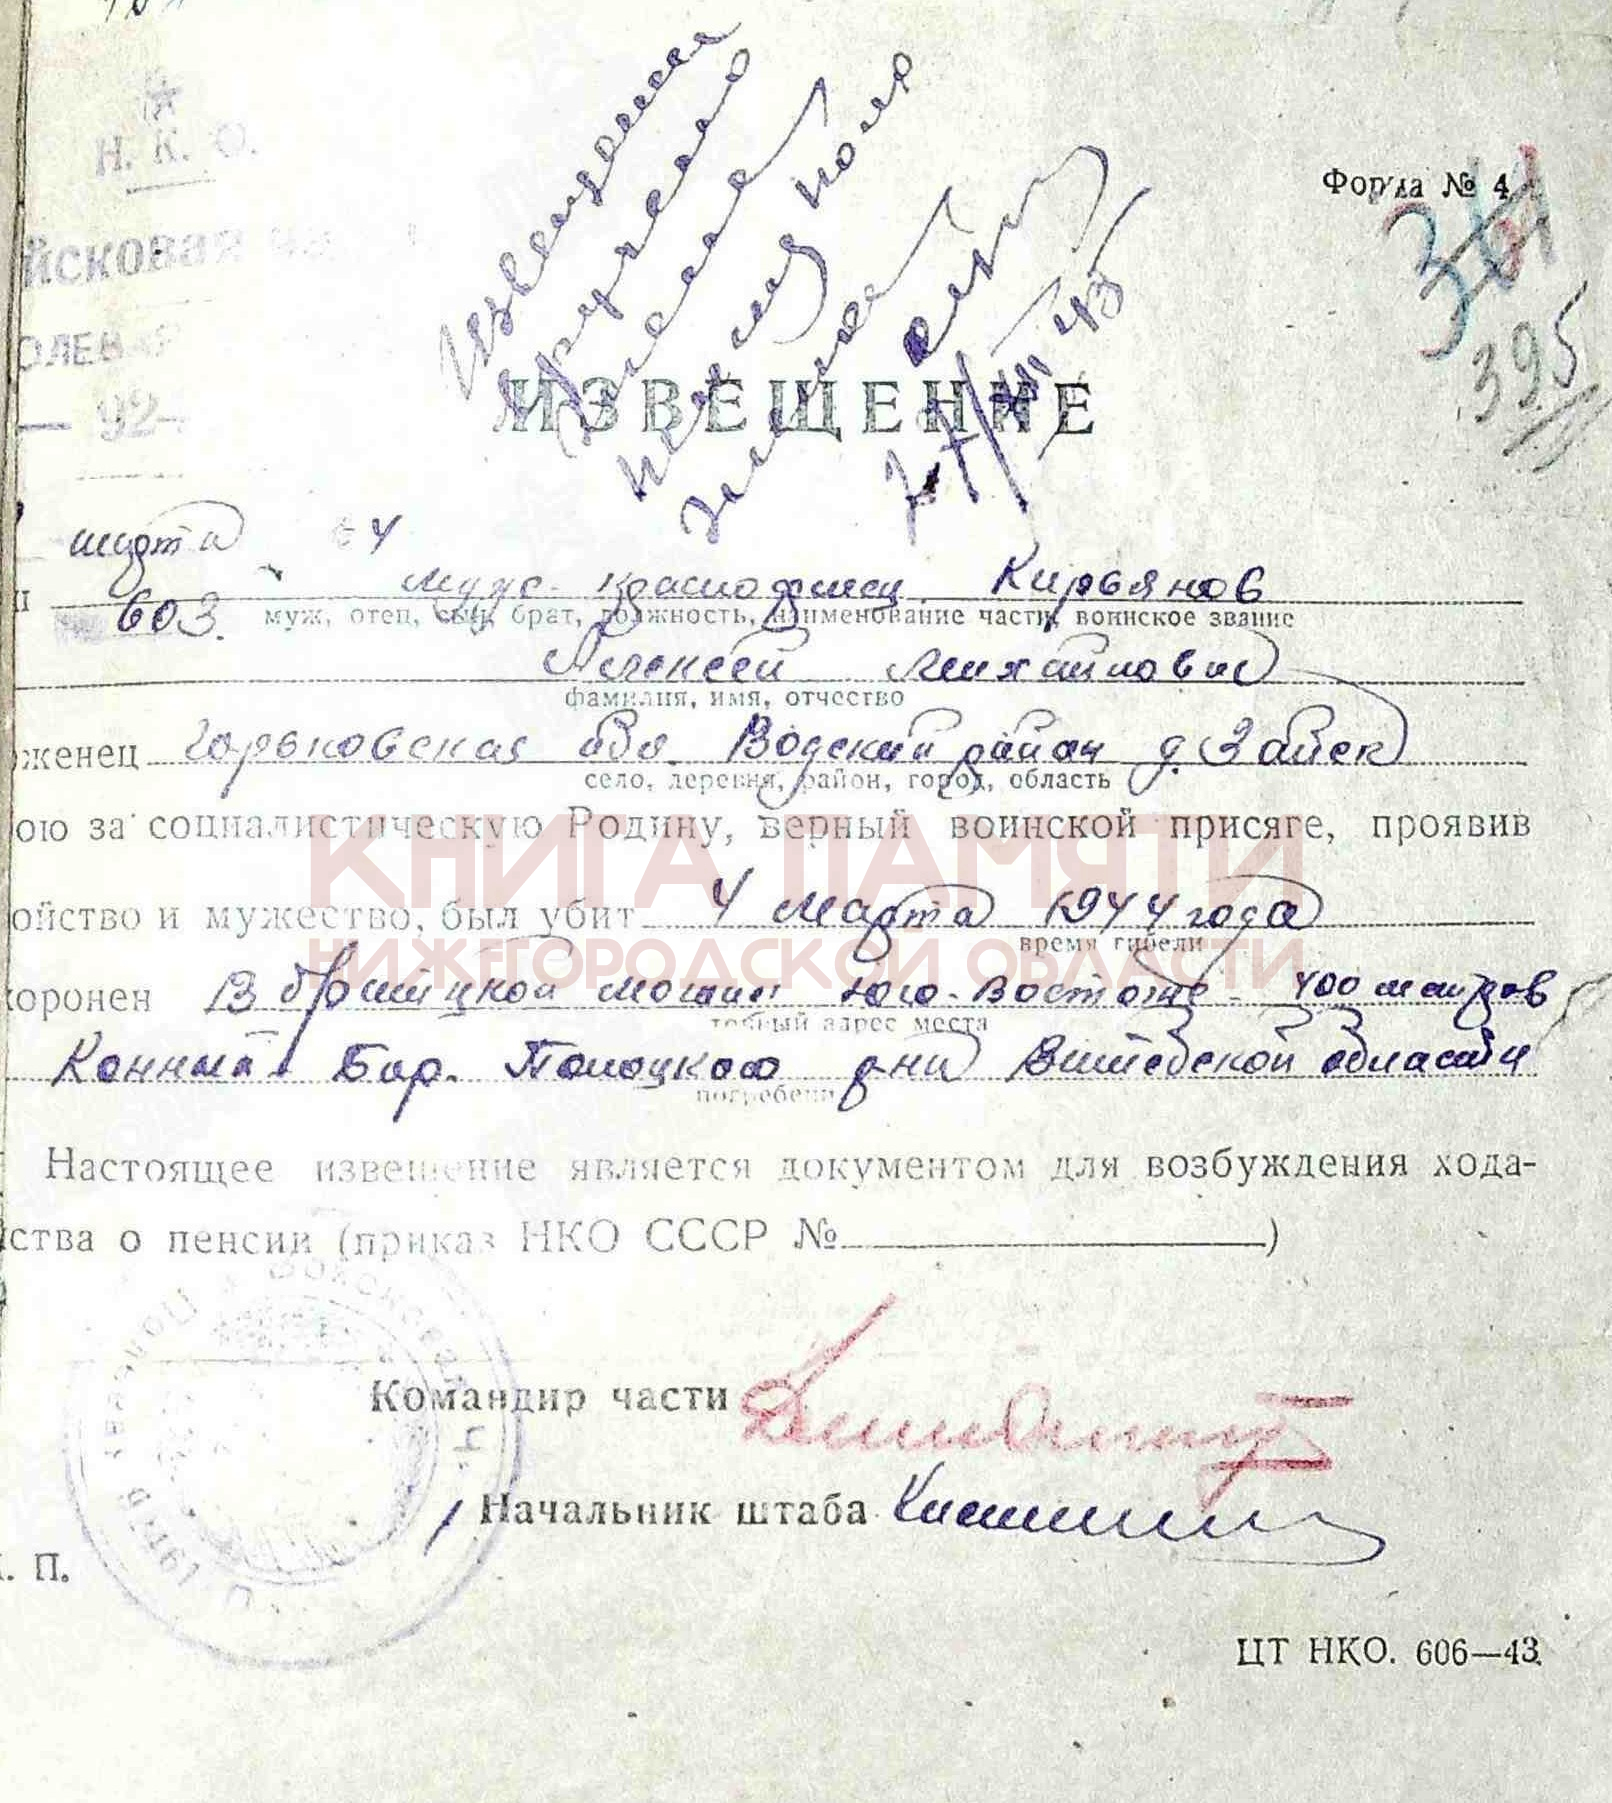 Н. К. О.
йсковая
Форма № 4
ОЛЕВА
92-
395
Извещение
вручено
ИЗВЕЩЕНИЕ
марта 44
603.
муж- красноармеец Кирьянов
муж, отец, сын, брат, должность, наименование части, воинское звание
Алексей Михайлович
фамилия, имя, отчество
женец Горьковская обл. Водский район д. Зайск
село, деревня, район, город, область
ою за социалистическую Родину, верный воинской присяге, проявив
ойство и мужество, был убит 4 Марта 1944 года
время гибели
хоронен В братской могиле Юго-Восточне 400 метров
точный адрес места
Конный Бор. Полоцкого р-на Витебской области
погребения
Настоящее извещение является документом для возбуждения хода-
ства о пенсии (приказ НКО СССР № )
Командир части
Начальник штаба
. П.
ЦТ НКО. 606—43.
КНИГА ПАМЯТИ
НИЖЕГОРОДСКОЙ ОБЛАСТИ